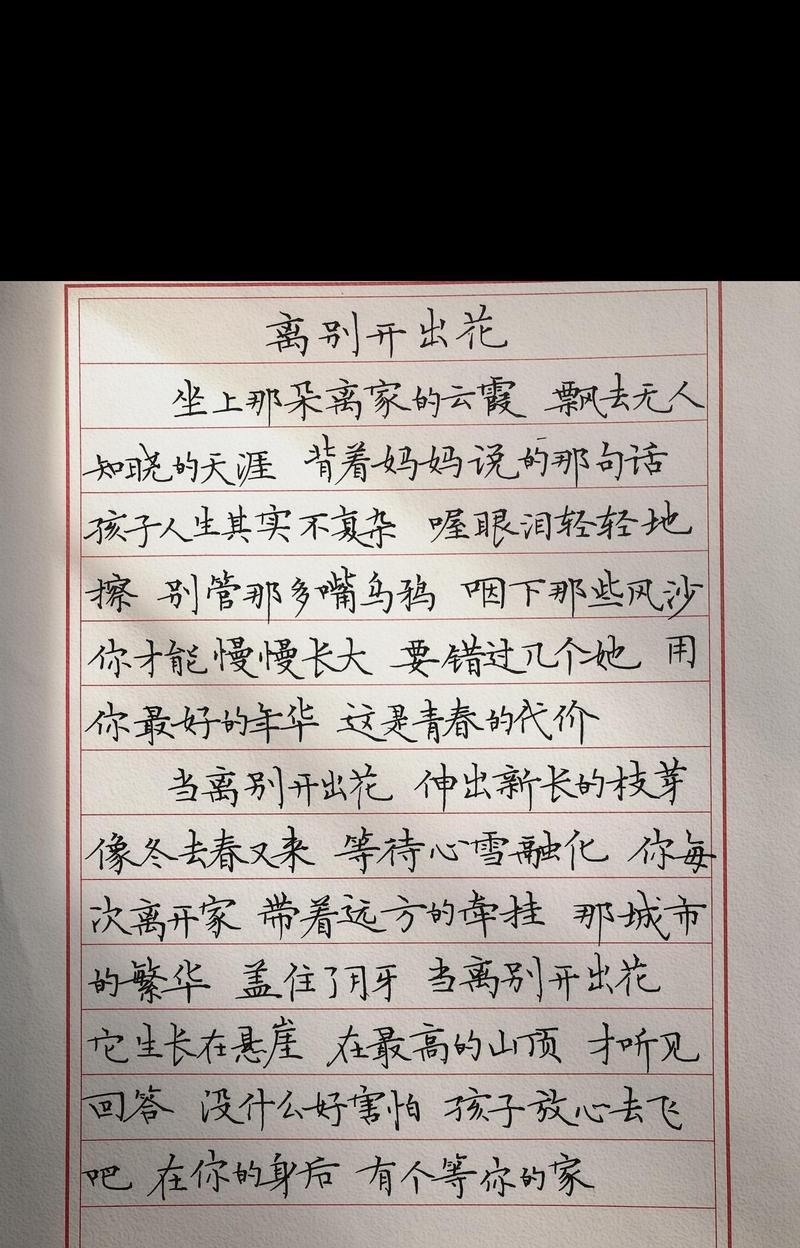 离别开出花
坐上那朵离家的云霞 飘去无人
知晓的天涯 背着妈妈说的那句话
孩子人生其实不复杂 喔眼泪轻轻地
擦 别管那多嘴乌鸦 咽下那些风沙
你才能慢慢长大 要错过几个她 用
你最好的年华 这是青春的代价
当离别开出花 伸出新长的枝芽
像冬去春又来 等待心雪融化 你每
次离开家 带着远方的牵挂 那城市
的繁华 盖住了月牙 当离别开出花
它生长在悬崖 在最高的山顶 才听见
回答 没什么好害怕 孩子放心去飞
吧 在你的身后 有个等你的家